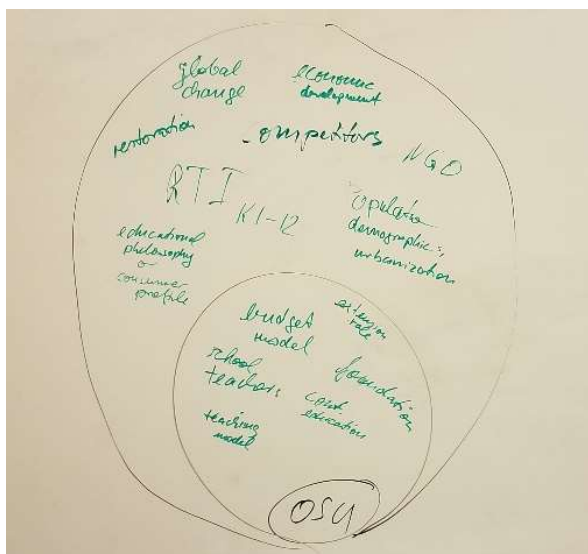 global
change
economic
development
restoration
competitors
NGO
RTI
K1-12
population
demographics,
urbanization
educational
philosophy
or
consumer
profile
budget
model
extension
role
school
teachers
foundation
cont
education
teaching
model
OSU